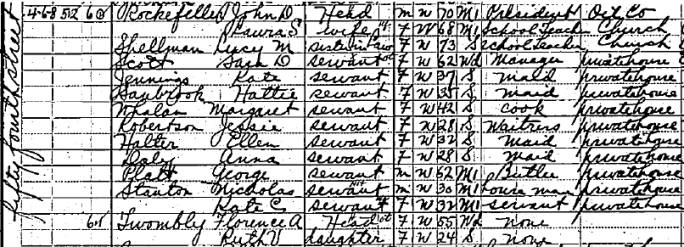 fifty fourth street
4-6-8 512 60 Rockefeller John D Head m W 70 M1 President Oil Co
Laura S wife F W 68 M1 School Teach Church
Spellman Lucy M sister in law F W 73 S School Teacher Church
Scott Sara D servant F W 62 Wd Manager private house
Jennings Kate servant F W 37 S maid private house
Hattie servant F W 35 S maid private house
Whalan Margaret servant F W 42 S Cook private house
Robertson Jessie servant F W 28 S Waitress private house
Halter Ellen servant F W 32 S Maid private house
Daly Anna servant F W 28 S Maid private house
Platt George servant m W 62 M1 Butler private house
Stanton Nicholas servant m W 30 M1 house man private house
Kate C servant F W 32 M1 servant private house
61 Twombly Florence A Head F W 55 Wd None
Ruth V daughter F W 24 S None